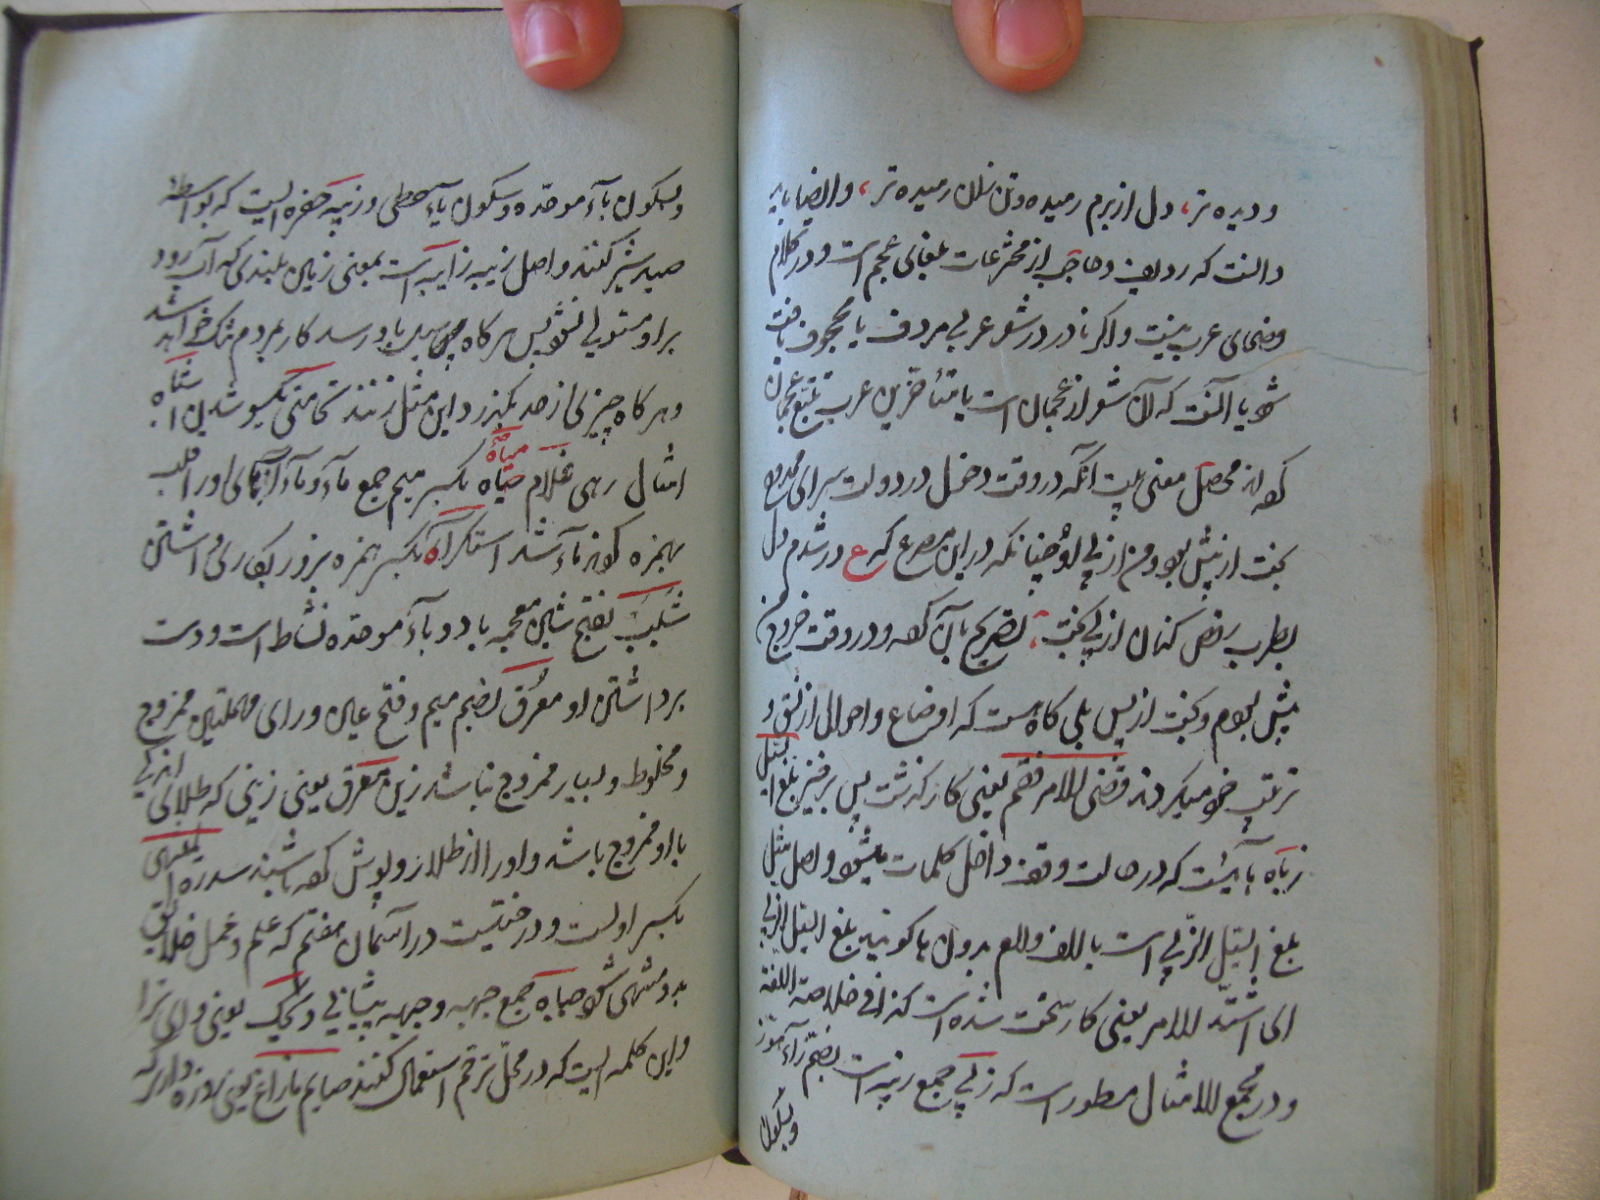 و دیده تر، دل از برم رمیده و تن رمیده تر، و ایضا باید
دانست که ردیف و حاجب از مخترعات بلغای عجم است و در کلام
فصحای عرب نیست و اگر نادر در شعر عربی مردف یا محجوب یافت
شود یا آنست که آن شعر از عجمان است یا متأخرین عرب تتبع عجمان
کرده اند محصل معنی بیت آنکه در وقت دخول در دولت سرای ممدوح
بخت از پیش بود و من از پی او چنانکه در این مصرع که ع در شدم دل
بطرب رقص کنان از پی بخت، تصریح بآن کرده و در وقت خروج من
پیش بودم و بخت از پس بلی گاه هست که اوضاع و احوال از نسق و
ترتیب خود میگردند قضی الامر فقم یعنی کار گذشت پس برخیز بلغ السیل
زباه هائیست که در حالت وقف داخل کلمات میشود و اصل مثل
بلغ السیل الزبی است با الف و لام بدون ها گویند بلغ السیل الزبی
ای اشتد الامر یعنی کار سخت شده است کذا فی خلاصة اللغة
و در مجمع الامثال مسطور است که زبی جمع زبیه است بضم زاء هوّز
وبسکون
وبسکون باء موحده وسکون یاء حطی و زبیه حفره ایست که بواسطه
صید شیر کنند و اصل زبیه زابیه است بمعنی زمین بلندی که آب رود
بر او مستولی نشود پس هر گاه سیل باو رسد کار بمردم تنگ خواهد شد
و هر گاه چیزی از حد بگذرد این مثل زنند قامتی یکسو شدن اشباه
امثال رهی غلام میاه بکسر میم جمع ماء و ماء آبی اورا قلب
بهمزه کردند ماء شد استکراه بکسر همزه بزور بکاری واداشتن
شبب بفتح شین معجمه با دو باء موحده نشاط است و دست
برداشتن او معرق بضم میم و فتح عین و رای مهملتین ممزوج
و مخلوط و بسیار ممزوج نباشد زین معرق یعنی زینی که طلائی اندکی
با او ممزوج باشد و اورا از طلا روپوش کرده باشند سدره المنتهی
بکسر اولست و درختیست در آسمان هفتم که علم و عمل خلایق
بدو منتهی شود جباه جمع جبهه و جبهه پیشانی ویحک یعنی وای ترا
و این کلمه ایست که در محل ترحم استعمال کنند صایم مازاغ یعنی روزه دار که